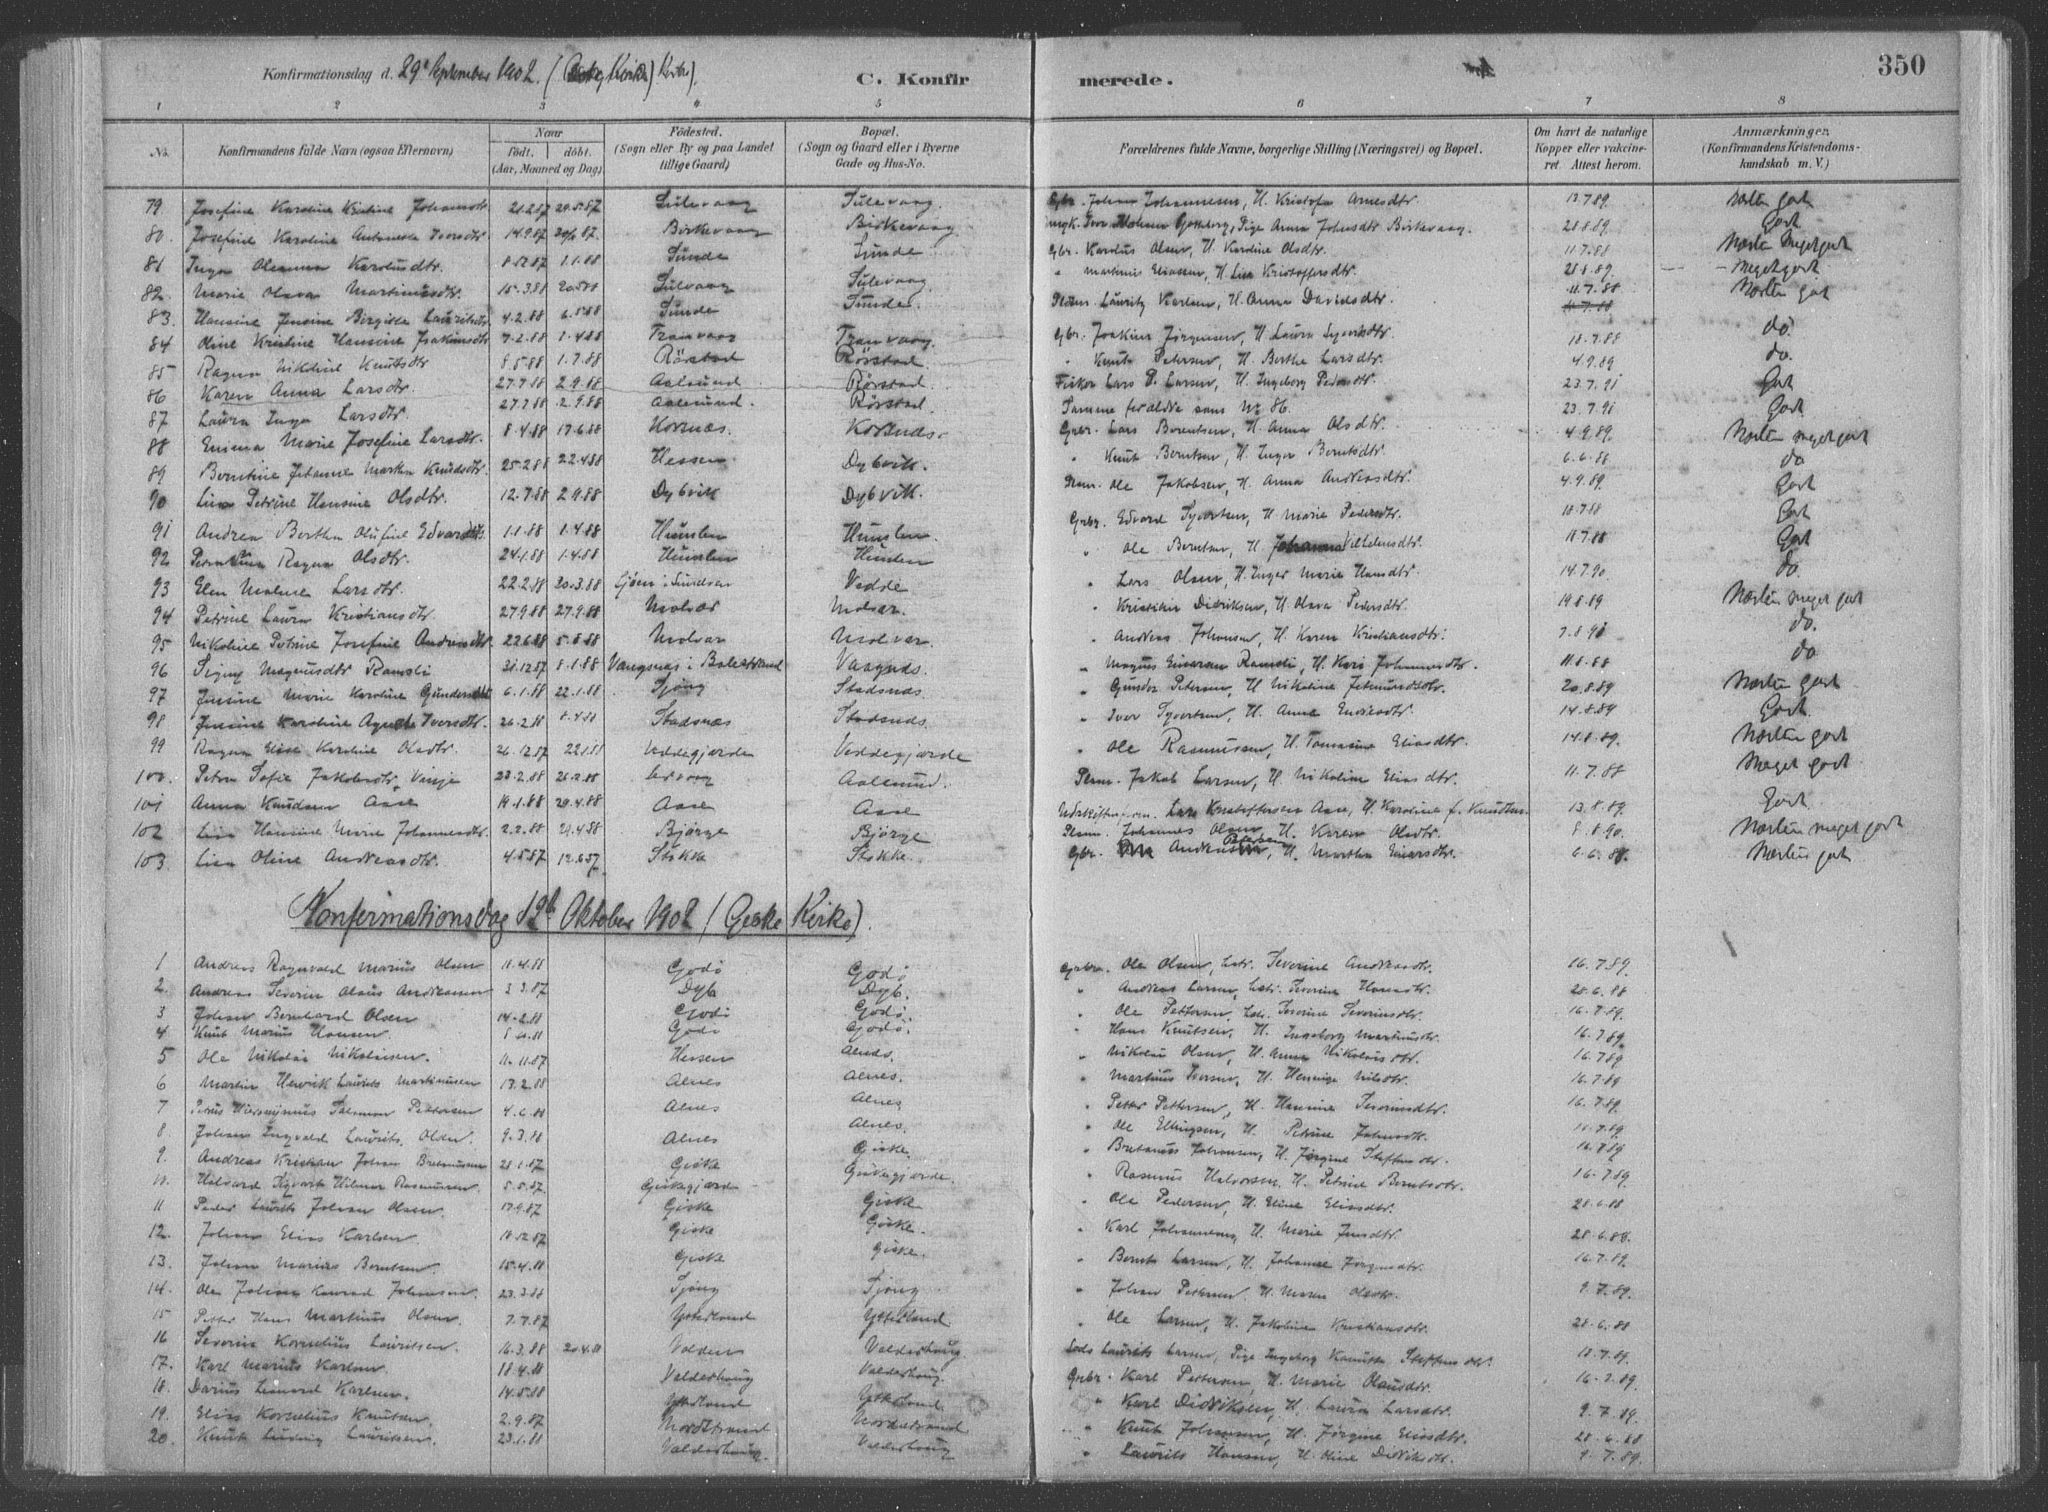 350
Konfirmationsdag d. 29de September 1902. (Kirke)
C. Konfirmerede.
1 2 3 4 5 6 7 8
No. Konfirmandens fulde Navn (ogsaa Efternavn) Naar født. døbt. (Aar, Maaned og Dag) Födested. (Sogn eller By og paa Landet tillige Gaard) Bopæl. (Sogn og Gaard eller i Byerne Gade og Hus-No. Forældrenes fulde Navne, borgerlige Stilling (Næringsvei) og Bopæl. Om havt de naturlige Kopper eller vaccineret. Attest herom. Anmærkninger. (Konfirmandens Kristendomskundskab m. V.)
79 Josefine Karoline Kristine Johansdtr. 21.2.87 29.5.87 Sulevaag Sulevaag. Gbr. Johan Johannesen, H. Kristofa Arnesdtr. 13.7.89. Næsten godt
80. Josefine Karoline Antonette Iversdtr. 14.9.87 Birkevaag Birkevaag Iver Gotteberg, Pige Anna Johnsdtr Birkevaag. 28.8.89. Godt
81 Inga Oleanna Karolusdtr. 8.12.87 1.1.88 Sunde Sunde Gbr. Karolus Olsen, H. Karoline Olsdtr. 11.7.88 Næsten Meget godt
82. Marie Olava Martinusdtr. 15.3.88 Sulvaag Sulevaag " Martinus Eliassen, H. Lina Kristoffersdtr. 28.8.89. Meget godt
83. Hansine Jensine Birgitte Lauritsdtr. 4.2.88 Sunde Sunde. Lauritz Karlsen, H. Anna Davidsdtr. 11.7.88 Næsten godt
84 Oline Kristine Hansine Joakimsdtr 7.2.88 1.4.88 Tranvaag Tranvaag. Gbr. Joakim Jørgensen, H. Laura Syvertsdtr. 18.7.88 do.
85 Ragna Nikoline Knutsdtr 8.5.88 1.7.88 Rörstad Rörstad. " Knut Petersen, H. Berthe Larsdtr. 4.9.89 do.
86 Karen Anna Larsdtr. 27.7.88 2.9.88 Aalesund Rörstad. Fisker Lars P. Larsen, H. Ingeborg Pedersdtr. 23.7.91 Godt
87 Laura Inga Larsdtr. 27.7.88 2.9.88 Aalesund. Rörstad. Samme forældre som No 86. 23.7.91 Godt
88 Emma Marie Josefine Larsdtr. 8.4.88 17.6.88 Korsnæs. Korsnæs. Grbr. Lars Berentsen, H. Anna Olsdtr. 4.9.89. Næsten meget godt
89 Berntine Johanne Martha Knudsdtr. 25.2.88 22.4.88 Hessen Dybvik. " Knut Berntsen, H. Inger Berntsdtr. 6.6.88 do
90 Lina Petrine Hansine Olsdtr. 12.7.88 2.9.88 Dybvik Dybvik. Ole Jakobsen, H. Anna Andreasdtr. 4.9.89. Godt
91 Andrea Berthe Olufine Edvardsdtr. 1.1.88 1.4.88 Humlen Humlen. Grbr. Edvard Syvertsen, H. Marie Pedersdtr. 18.7.88 Godt
92 Ragna Olsdtr. 24.1.88 1.4.88 Humlen Humlen " Ole Berntsen, H. Johanna Vilhelmsdtr. 11.7.88 Godt
93 Elen Malene Larsdtr. 22.2.88 20.3.88 Vedde " Lars Olsen, H. Inger Marie Hansdtr. 14.7.90 do.
94 Petrine Laura Kristiansdtr. 27.9.88 27.9.88 Molvær Molvær. " Kristian Didriksen, H. Olava Pedersdtr. 19.8.89 Næsten meget godt
95 Nikoline Petrine Josefine Andreasdtr 22.6.88 5.8.88 Molvær Molvær. " Andreas Johansen, H. Karen Kristiansdtr. 7.8.91 do.
96 Signy Magnusdtr Ramsli 31.12.87 8.1.88 Vangsnæs i Balestrand Vaagnæs. " Magnus Einarsen Ramsli, H. Kari Johannesdtr. 11.8.88 do
97 Jensine Marie Karoline Gundersdtr 6.1.88 22.1.88 Sjöng Stadsnæs. " Gunder Petersen, H. Nikoline Jetmundsdtr. 20.8.89 Næsten godt
98 Jensine Karoline Agnethe Iversdtr. 26.2.88 8.4.88 Stadsnæs Stadsnæs. " Iver Syvertsen, H. Anne Endresdtr. 14.8.89 Godt.
99 Ragna Elise Karoline Olsdtr. 26.12.87 22.1.88 Veddegjærde Veddegjærde " Ole Rasmussen, H. Tomasine Eliasdtr. 14.8.89. Næsten godt
100 Petra Sofie Jakobsdtr. Vinje 23.2.88 26.2.88 Aalesund. Jakob Larsen, H. Nikoline Eliasdtr. 11.7.88 Meget godt
101 Anna Knudsen Aase 14.1.88 29.4.88 Aase Aase Lars Kristoffersen Aase, H. Karoline f. Knudtsen 13.8.89. Godt.
102 Lina Hansine Marie Johannesdtr. 2.2.88 29.4.88 Bjørge Bjørge Johannes Olsen, H. Karen Olsdtr. 8.8.90. Næsten meget godt
103. Lina Oline Andreasdtr. 4.5.87 12.6.87 Stokke Stokke. Gbr. Andreas Petersen, H. Martha Einarsdtr. 6.6.88. Næsten godt
Konfirmationsdag 12te Oktober 1902 (Giske Kirke).
1 Andreas Ragnvald Marius Olsen 11.4.88 Godö Godö Grbr. Ole Olsen, hstr. Severine Andreasdtr. 16.7.89.
2. Andreas Severin Olaus Andreassen 3.3.87 Dyb Dyb. " Andreas Larsen, hstr. Severine Hansdtr. 28.6.88
3 Johan Bernhard Olsen 14.2.88 Godö Godö. " Ole Pettersen, hstr. Severine Severinsdtr. 16.7.89.
4 Knut Marius Hansen. Godö Godö. " Hans Knutsen, H. Ingeborg Martinusdtr. 16.7.89.
5 Ole Nikolai Nikolaisen. 11.11.87 Hessen Alnæs. " Nikolai Olsen, H. Anna Nikolaisdtr. 16.7.89
6 Martin Henrik Laurits Martinusen 17.2.88 Alnes Alnes. " Martinus Iversen, H. Henninge Nilsdtr. 16.7.89.
7 Petrus Hieronymus Salamon Pettersen 4.6.88 Alnes Alnes " Petter Pettersen, H. Hansine Severinsdtr. 16.7.89
8. Johan Ingvald Laurits Olsen. 9.3.88 Alnes Alnes. " Ole Ellingsen, H. Petrine Johnsdtr. 16.7.89
9. Andreas Kristian Johan 28.1.87 Giske Giske. " Johansen, H. Jørgine Steffensdtr. 16.7.89
10. Halvard Syvert Hilmar Rasmussen. 5.5.87. Giskegjærde Giskegjærde. " Rasmus Halvorsen, H. Petrine Berntsdtr. 16.7.89.
11 Peder Laurits Johan Olsen. 17.9.87 Giske Giske " Ole Pedersen, H. Eline Eliasdtr. 28.6.88
12. Johan Elias Karlsen. 10.12.87 Giske Giske. " Karl Johannesen, H. Marie Jensdtr. 28.6.88.
13. Johan Marius Berntsen. 15.4.88 Giske Giske. " Bernt Larsen, H. Johanne Jørgensdtr. 16.7.89.
14. Ole Johan Konrad Johansen. 23.3.88 Sjöng Sjöng " Johan Pettersen. H. Maren Olsdtr. 9.7.89.
15 Petter Hans Martinus Olsen 7.7.87 Ytterland Ytterland. " Ole Larsen, H. Jakobine Kristiansdtr. 28.6.88
16 Severin Kornelius Lauritsen. 16.3.88 20.4.88 Valderhoug. Laurits Larsen, Pige Ingeborg Steffensdtr. 18.7.89.
17. Karl Marius Karlsen 18.4.88 Valderhoug Valderhoug. Grbr. Karl Pettersen, H. Marie Olausdtr. 16.7.89.
18. Darius Leonard Karlsen. 14.5.88 Ytterland Ytterland. " Karl Didriksen, H. Laura Larsdtr. 9.7.89.
19. Elias Kornelius Knutsen. 2.9.87 Nordstrand Nordstrand " Knut Johansen, H. Jørgine Eliasdtr. 28.6.88
20. Knut Ludvig Lauritsen. 23.1.88 Valderhoug. Valderhoug " Laurits Hansen, H. Oline Didriksdtr. 9.7.89.